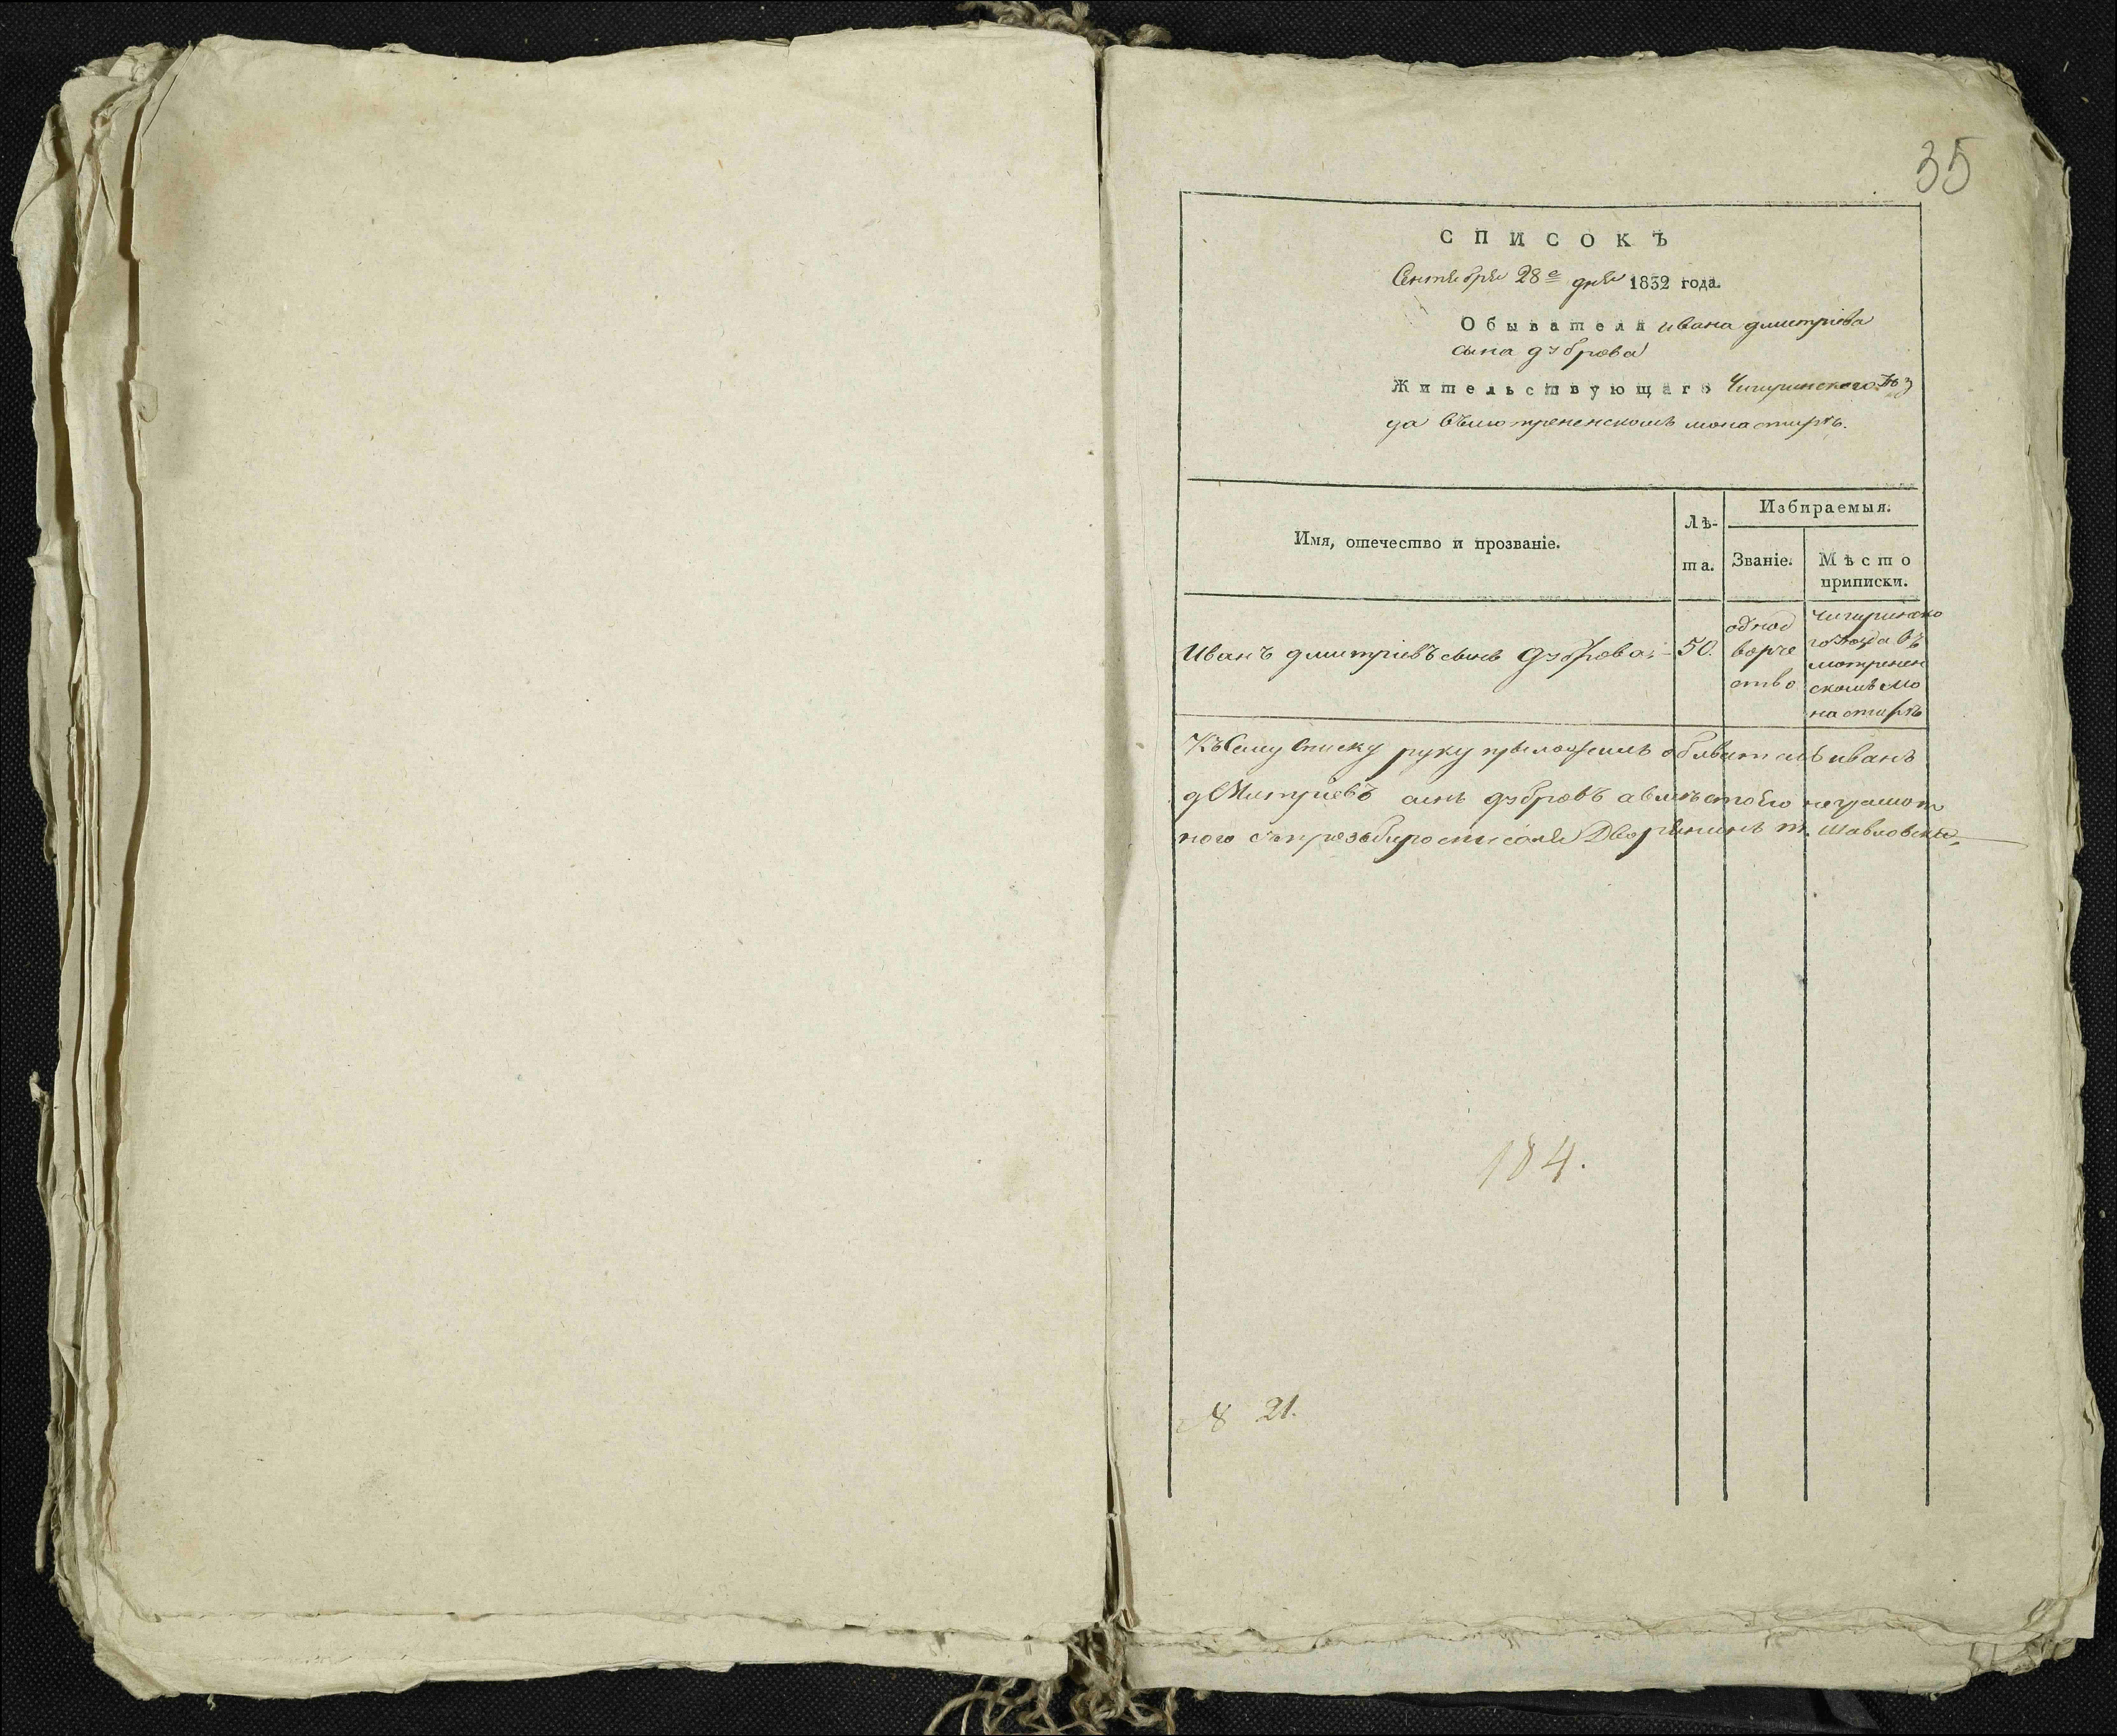 35
СПИСОКЪ
Сентября 28го дня 1832 года.
Обывателя ивана дмитріева
сына дуброва
Жительствующаго Чигиринского уѣз
да въ мотрененскомъ монастирѣ.
Имя, отечество и прозваніе.
Лѣ-
та.
Избираемыя.
Званіе.
Мѣсто
приписки.
Иванъ дмитріевъ сынъ дуброва
50.
однод
ворче
ство
чигиринско
го уѣзда въ
мотренен
скомъ мо
настирѣ
Къ Сему Списку руку приложилъ обыватель иванъ
дмитріевъ сынъ дубровъ а вмѣсто его неграмот
ного Дворянинъ
184.
№ 21.